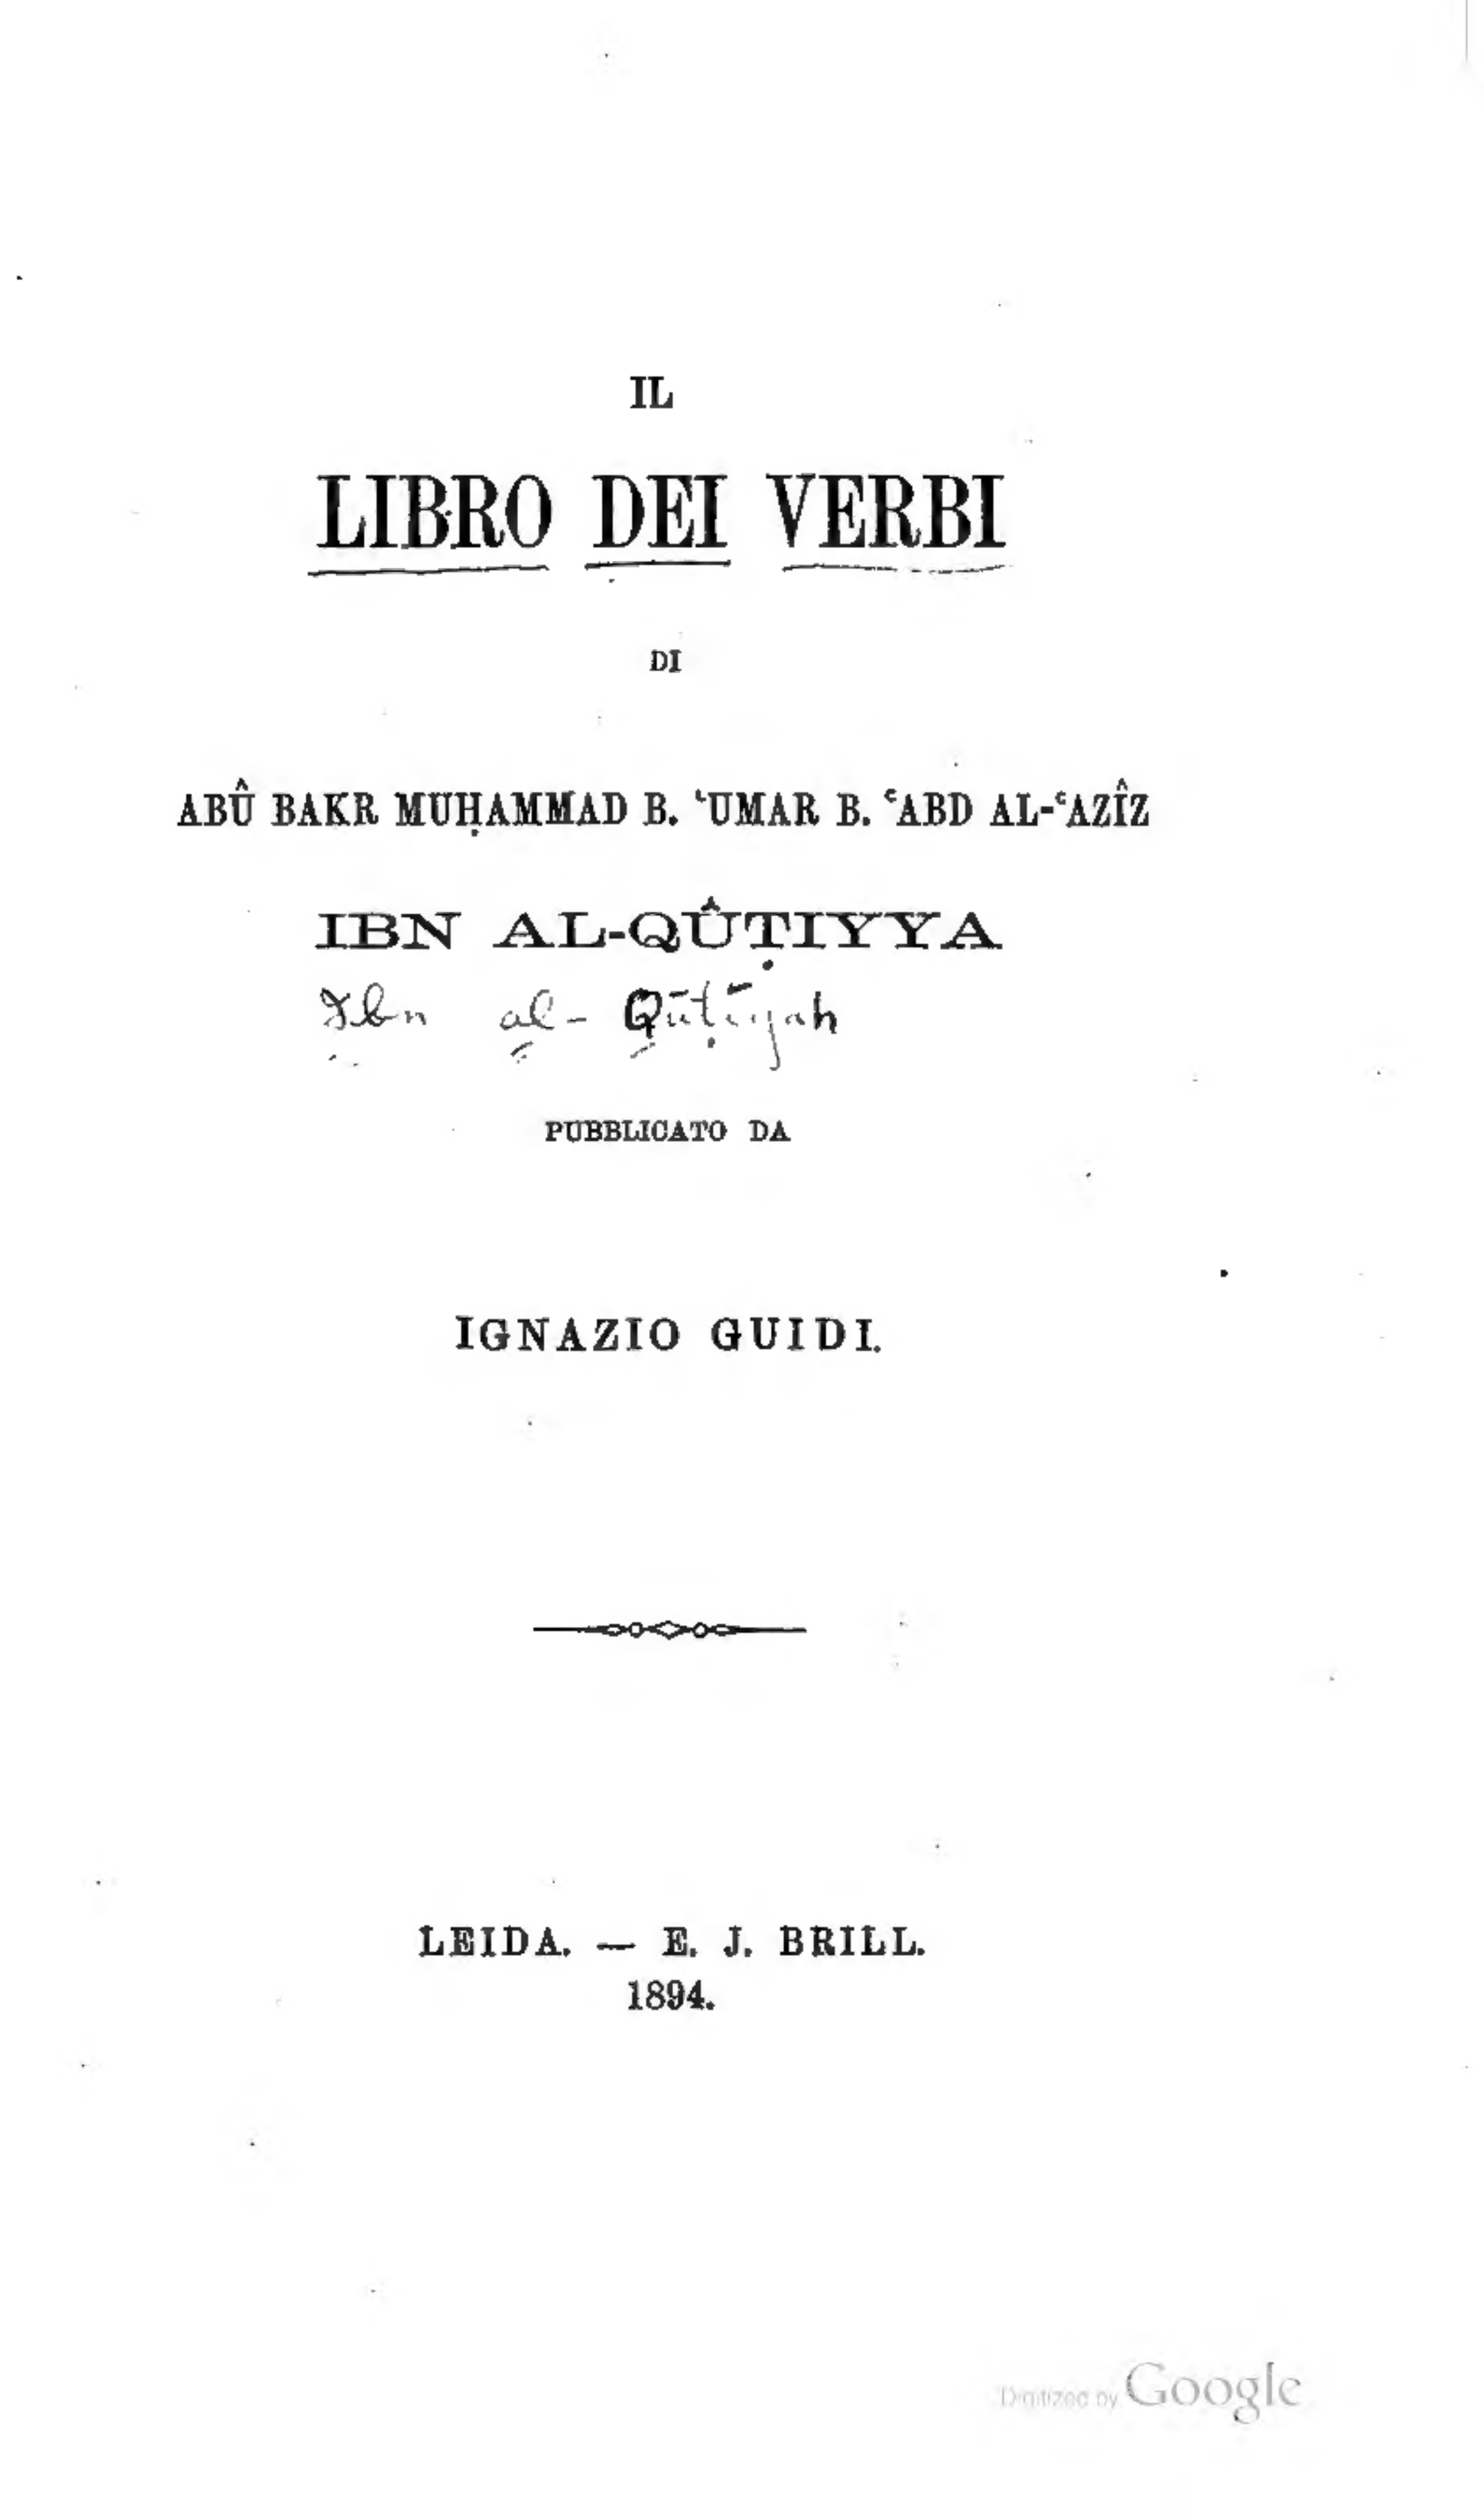 IL
LIBRO DEI VERBI
DI
ABÛ BAKR MUḤAMMAD B. ʿUMAR B. ʿABD AL-ʿAZÎZ
IBN AL-QÛṬIYYA
Ibn al-Qūṭīyah
PUBBLICATO DA
IGNAZIO GUIDI.
LEIDA. — E. J. BRILL.
1894.
Digitized by Google